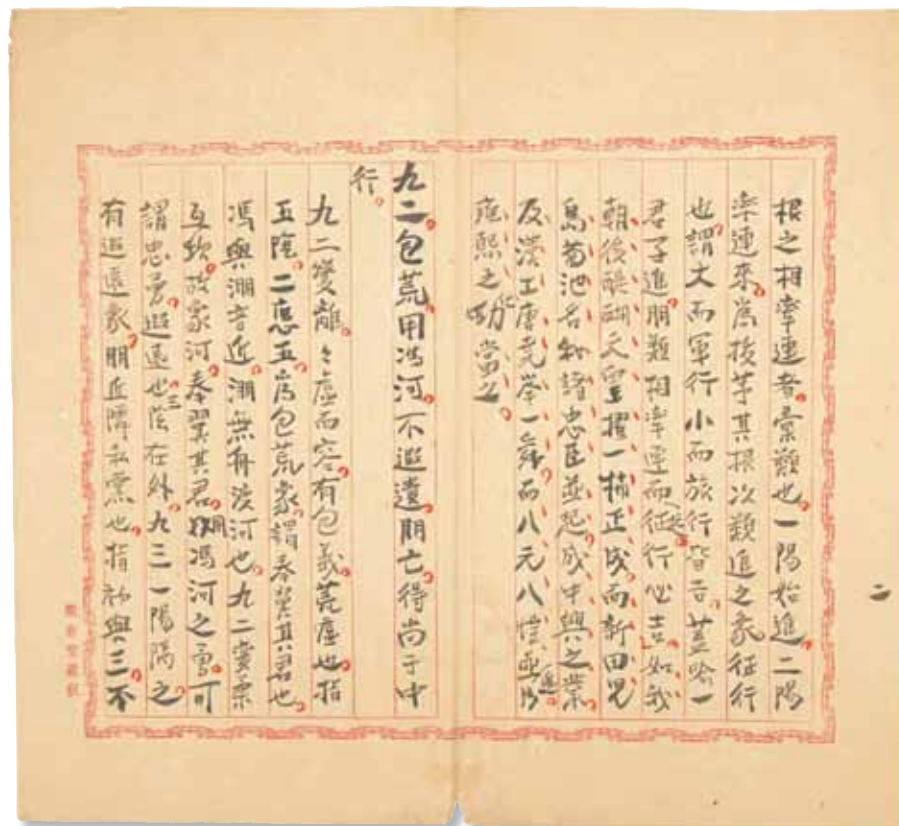 二
根之相牽連者彙類也一陽始進二陽
牽連來為拔茅其根次類進之象征行
也謂大而軍行小而旅行皆吉蓋喻一
君子進朋類相牽連而征行必吉如我
朝後醍醐天皇擢一楠正成而新田兒
島菊池名和諸忠臣並起成中興之業
及漢土唐堯舉一舜而八元八愷並進
雍熙之化當之
九二包荒用馮河不遐遺朋亡得尚于中
行
九二變離々虛而容有包義荒虛也指
五陰二應五為包荒象謂奉翼其君也
馮與淵音近無舟渡河也九二變
互坎故象河奉翼其君用馮河之勇可
謂忠勇遐遠也三陰在外九三一陽隔之
有遐遠象朋丘隣私黨也指初與三不